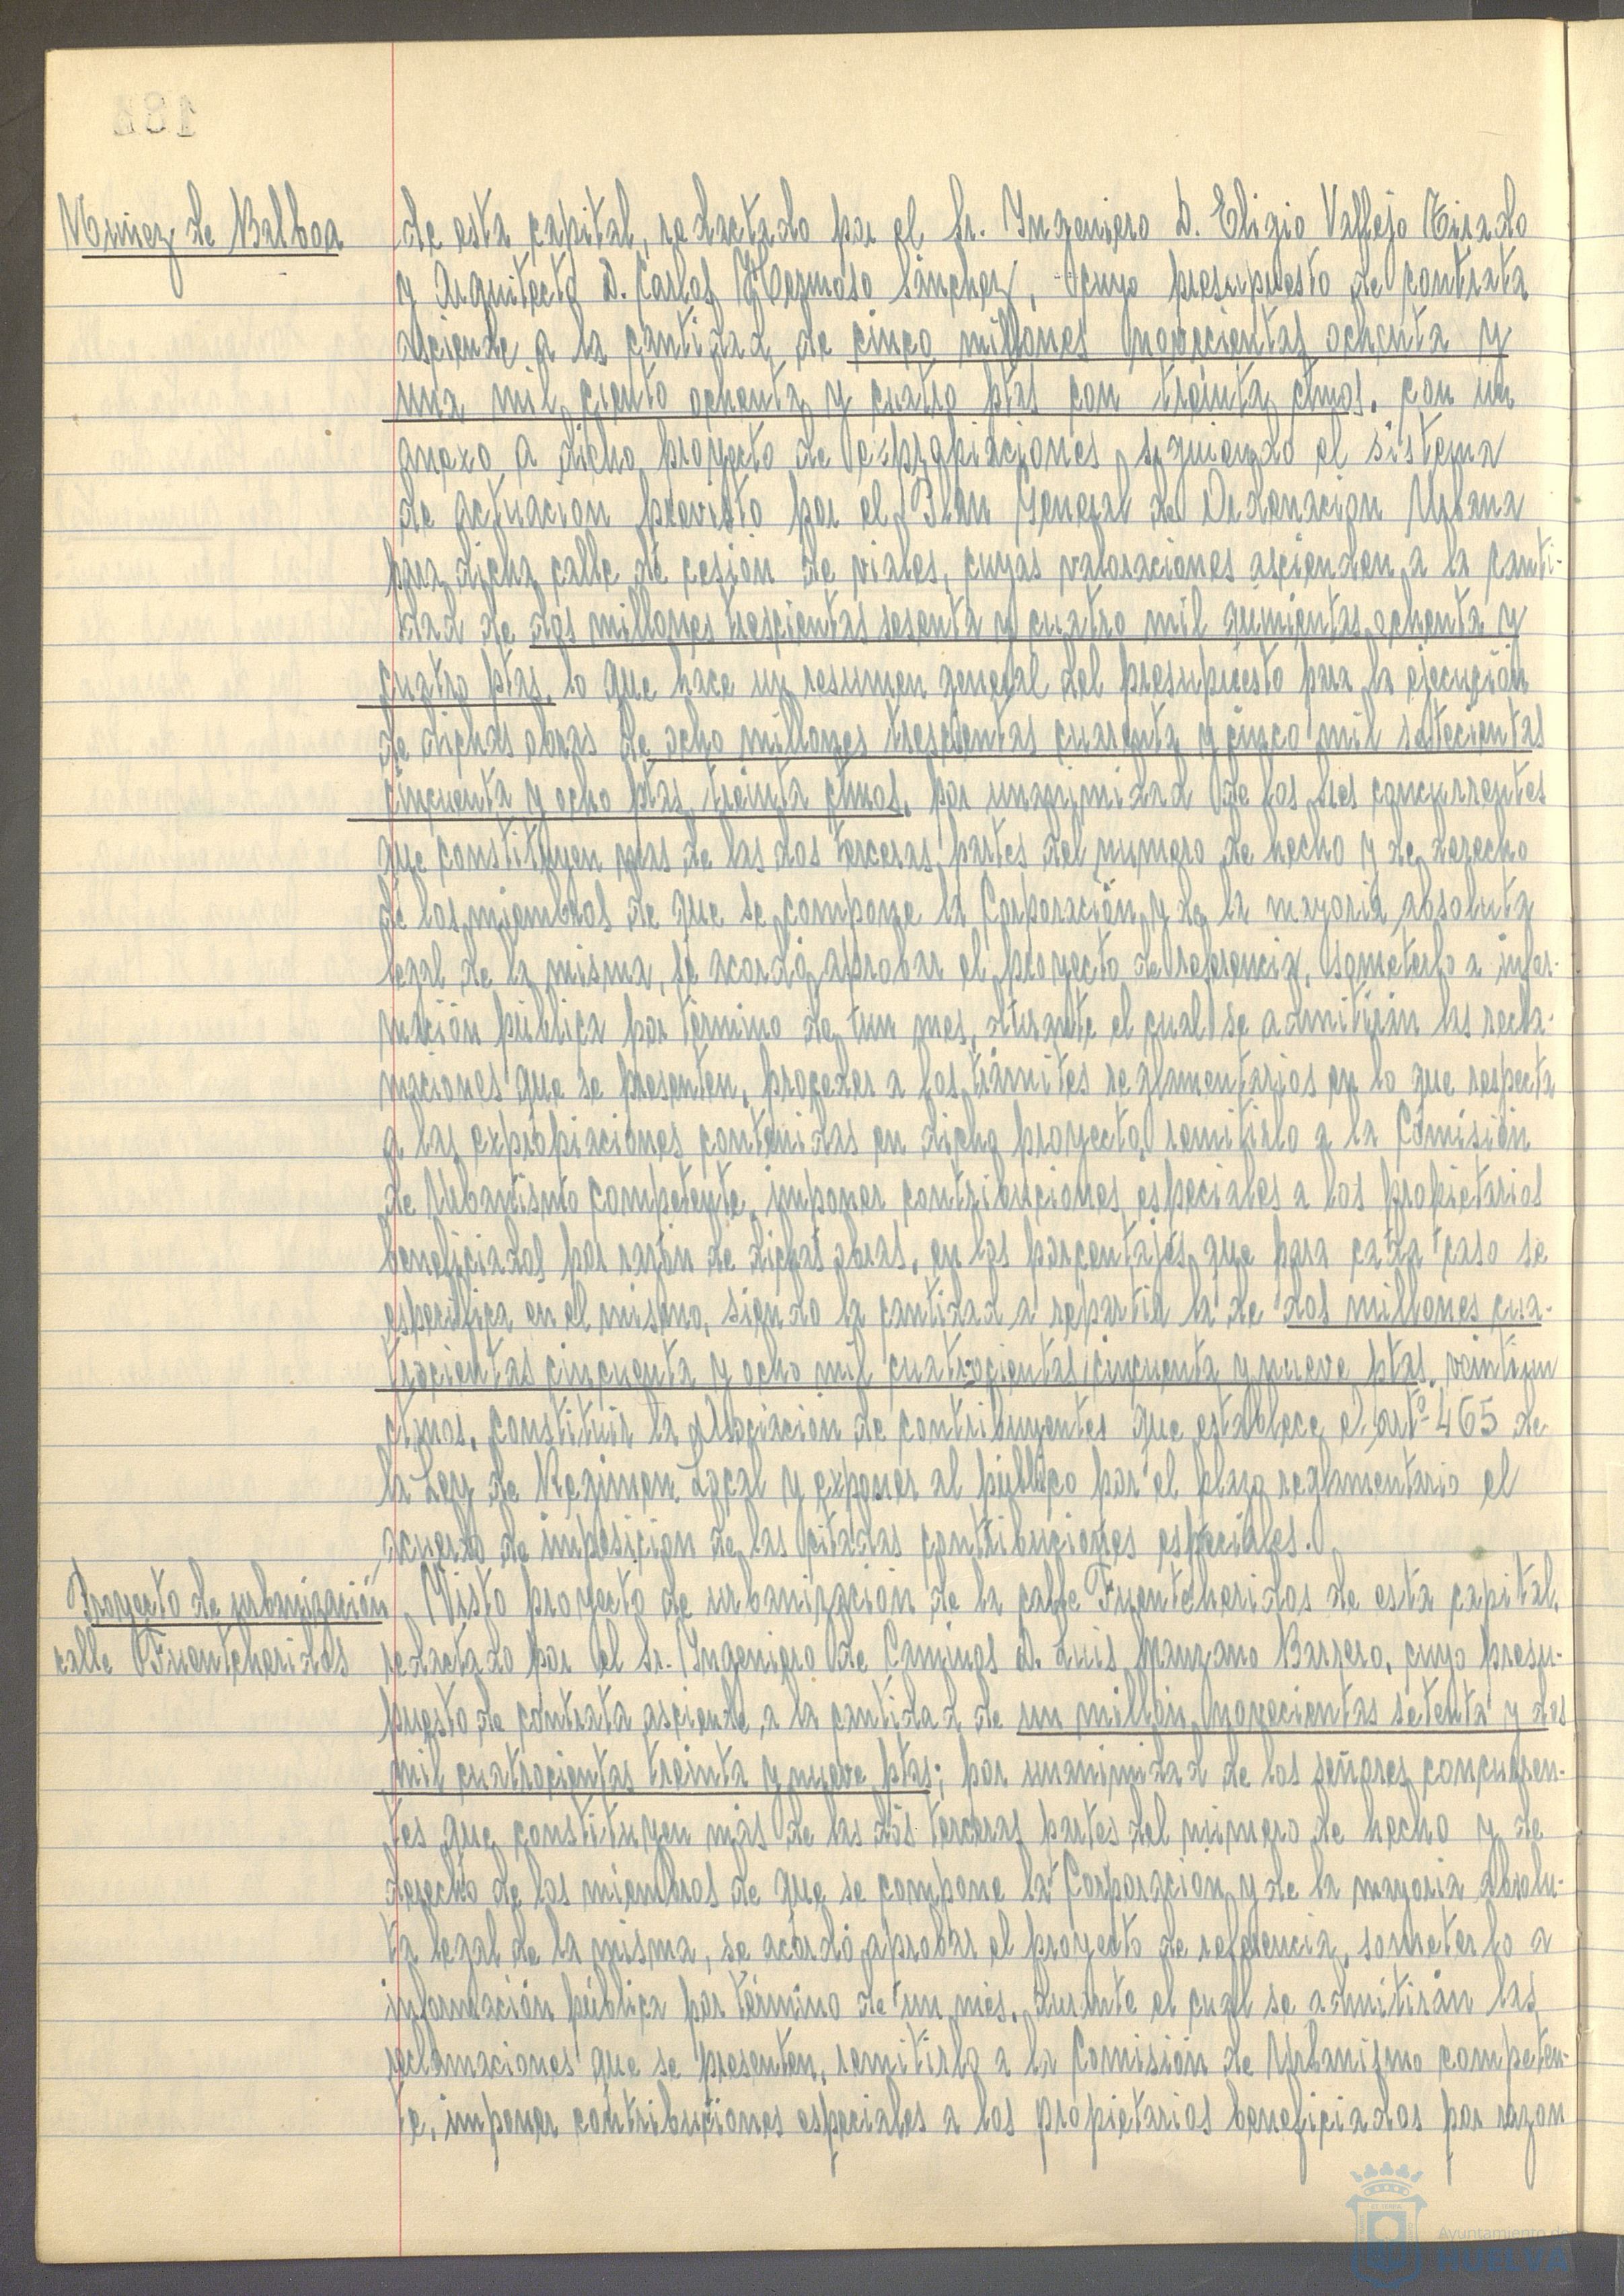 Nuñez de Balboa
de esta capital, redactado por el Sr. Ingeniero D. Eligio Vallejo Tirado
y Arquitecto D. Carlos Hermoso Sánchez, cuyo presupuesto de contrata
asciende a la cantidad de cinco millones novecientas ochenta y
una mil ciento ochenta y cuatro ptas con treinta ctmos. con un
anexo a dicho proyecto de expropiaciones siguiendo el sistema
de actuacion previsto por el Plan General de Ordenacion Urbana
para dicha calle de cesión de viales, cuyas valoraciones ascienden a la canti-
dad de dos millones trescientas sesenta y cuatro mil quinientas ochenta y
cuatro ptas, lo que hace un resumen general del presupuesto para la ejecución
de dichas obras de ocho millones trescientas cuarenta y cinco mil setecientas
cincuenta y ocho ptas treinta ctmos, por unanimidad de los Sres concurrentes
que constituyen mas de las dos terceras partes del numero de hecho y de derecho
de los miembros de que se compone la Corporación y de la mayoria absoluta
legal de la misma, se acordó aprobar el proyecto de referencia, someterlo a infor-
mación pública por término de un mes, durante el cual se admitirán las recla-
maciones que se presenten, proceder a los trámites reglamentarios en lo que respecta
a las expropiaciones contenidas en dicho proyecto, remitirlo a la Comisión
de Urbanismo competente, imponer contribuciones especiales a los propietarios
beneficiados por razón de dichas obras, en los porcentajes que para cada caso se
especifica en el mismo, siendo la cantidad a repartir la de dos millones cua-
trocientas cincuenta y ocho mil cuatrocientas cincuenta y nueve ptas. veintiun
ctmos, constituir la Asociacion de contribuyentes que establece el artº 465 de
la Ley de Regimen Local y exponer al público por el plazo reglamentario el
acuerdo de imposicion de las citadas contribuciones especiales.
Proyecto de urbanización
calle Fuenteheridos
Visto proyecto de urbanización de la calle Fuenteheridos de esta capital,
redactado por el Sr. Ingeniero de Caminos D. Luis Manzano Barrero, cuyo presu-
puesto de contrata asciende a la cantidad de un millón novecientas setenta y dos
mil cuatrocientas treinta y nueve ptas; por unanimidad de los señores concurren-
tes que constituyen más de las dos terceras partes del número de hecho y de
derecho de los miembros de que se compone la Corporacion y de la mayoria absolu-
ta legal de la misma, se acordó aprobar el proyecto de referencia, someterlo a
información pública por término de un mes, durante el cual se admitirán las
reclamaciones que se presenten, remitirlo a la Comisión de Urbanismo competen-
te, imponer contribuciones especiales a los propietarios beneficiados por razon
Ayuntamiento de
HUELVA